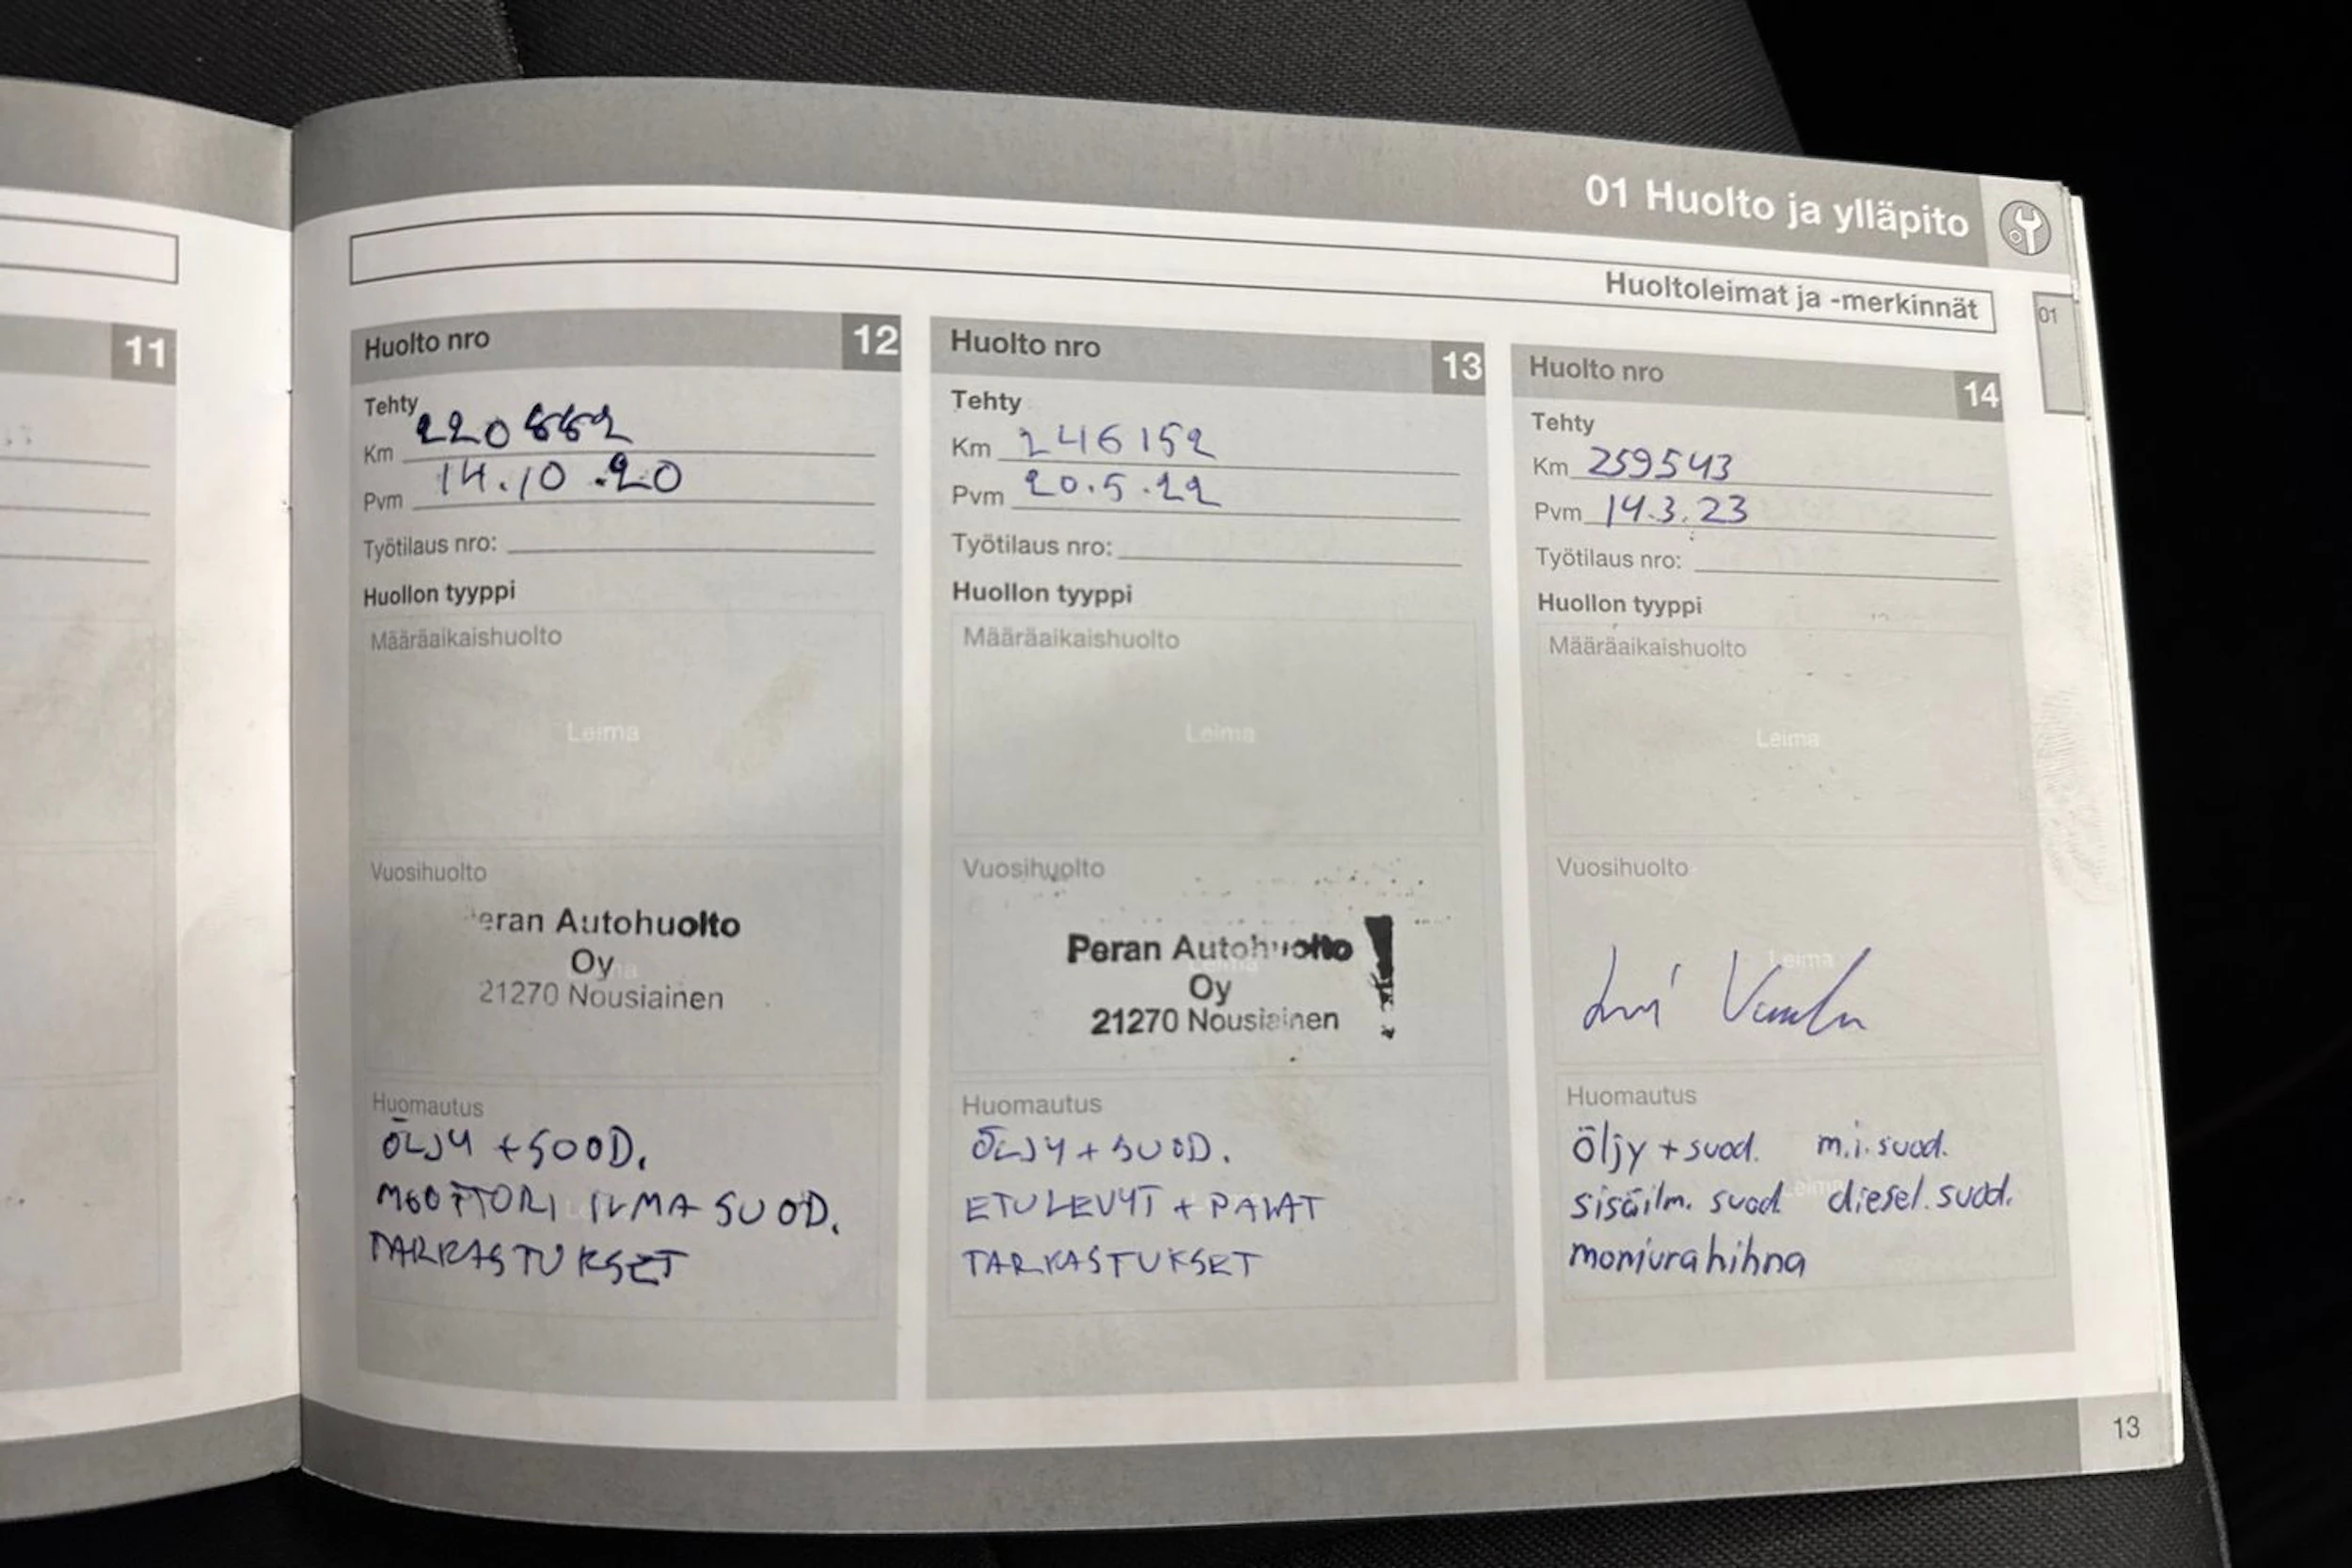 01 Huolto ja ylläpito
Huoltoleimat ja -merkinnät
01
11
Huolto nro 12
Tehty
Km 220882
Pvm 14.10.20
Työtilaus nro:
Huollon tyyppi
Määräaikaishuolto
Leima
Vuosihuolto
eran Autohuolto
Oy
21270 Nousiainen
Huomautus
ÖLJY + SUOD.
MOOTTORI ILMA SUOD.
TARKASTUKSET
Huolto nro 13
Tehty
Km 246152
Pvm 20.5.22
Työtilaus nro:
Huollon tyyppi
Määräaikaishuolto
Leima
Vuosihuolto
Peran Autohuolto
Oy
21270 Nousiainen
Huomautus
ÖLJY + SUOD.
ETULEVYT + PALAT
TARKASTUKSET
Huolto nro 14
Tehty
Km 259543
Pvm 14.3.23
Työtilaus nro:
Huollon tyyppi
Määräaikaishuolto
Leima
Vuosihuolto
Leima
Huomautus
Öljy + suod. m.i. suod.
sisäilm. suod diesel. suod.
moniurahihna
13